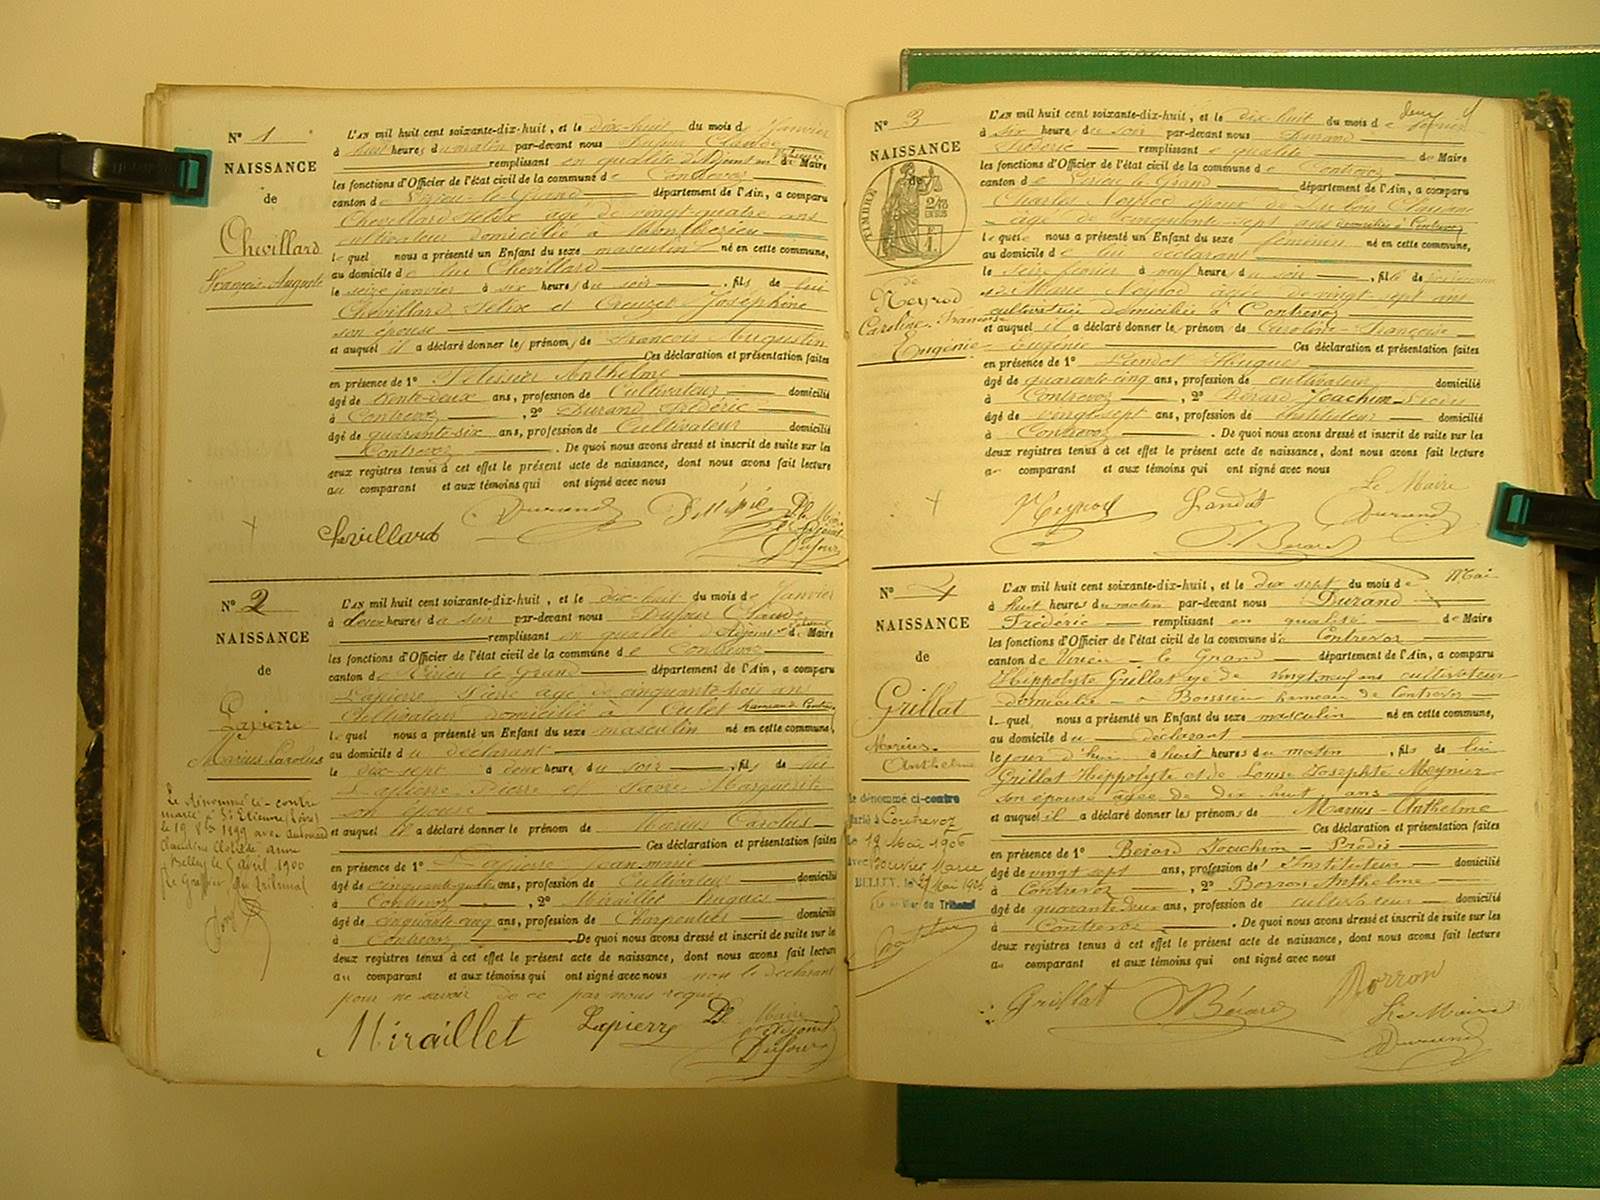 N° 1
NAISSANCE
de
Chevillard
François Auguste
L'AN mil huit cent soixante-dix-huit, et le dix-huit du mois de Janvier
à huit heures du matin par-devant nous Dufour Claude
remplissant en qualité d'Adjoint de Maire
les fonctions d'Officier de l'état civil de la commune de Contrevoz
canton de Virieu-le-Grand département de l'Ain, a comparu
Chevillard Félix âgé de vingt-quatre ans
cultivateur domicilié à
lequel nous a présenté un Enfant du sexe masculin né en cette commune,
au domicile de lui Chevillard
le seize janvier à six heures du soir , fils de lui
Chevillard Félix et Creuzet Joséphine
son épouse
et auquel il a déclaré donner les prénoms de François Augustin
Ces déclaration et présentation faites
en présence de 1° Pélissier Anthelme
âgé de trente-deux ans, profession de Cultivateur domicilié
à Contrevoz , 2° Durand Frédéric
âgé de quarante-six ans, profession de Cultivateur domicilié
Contrevoz . De quoi nous avons dressé et inscrit de suite sur les
deux registres tenus à cet effet le présent acte de naissance, dont nous avons fait lecture
au comparant et aux témoins qui ont signé avec nous
Chevillard Durand Dufour
N° 2
NAISSANCE
de
Lapierre
Marius Carolus
Le dénommé ci-contre
marié à St Etienne (Loire)
le 19 1899 avec
Claudine Clotilde Anne
Belley le 5 avril 1900
Le Greffier du tribunal
L'AN mil huit cent soixante-dix-huit, et le dix-huit du mois de Janvier
à deux heures du soir par-devant nous Dufour Claude
remplissant en qualité d'Adjoint de Maire
les fonctions d'Officier de l'état civil de la commune de Contrevoz
canton de Virieu le Grand département de l'Ain, a comparu
Lapierre Pierre âgé de cinquante-trois ans
Cultivateur domicilié à Cutet hameau
lequel nous a présenté un Enfant du sexe masculin né en cette commune,
au domicile du déclarant
le dix-sept à deux heures du soir , fils de lui
Lapierre Pierre et Marguerite
son épouse
et auquel il a déclaré donner le prénom de Marius Carolus
Ces déclaration et présentation faites
en présence de 1° Lapierre Jean-marie
âgé de cinquante-quatre ans, profession de Cultivateur domicilié
à Contrevoz , 2° Miraillet Hugues
âgé de cinquante-cinq ans, profession de Charpentier domicilié
à Contrevoz . De quoi nous avons dressé et inscrit de suite sur le
deux registres tenus à cet effet le présent acte de naissance, dont nous avons fait lecture
au comparant et aux témoins qui ont signé avec nous non le déclarant
pour ne savoir de ce par nous requis
Miraillet Lapierre Maire
Dufour
N° 3
NAISSANCE
TIMBRE
de
Neyrod
Caroline-Françoise
Eugénie
L'AN mil huit cent soixante-dix-huit, et le dix-huit du mois de février
à six heures du soir par-devant nous Durand
Frédéric remplissant en qualité de Maire
les fonctions d'Officier de l'état civil de la commune de Contrevoz
canton de Virieu le Grand département de l'Ain, a comparu
Charles Neyrod époux de
âgé de cinquante-sept ans domicilié à Contrevoz
lequel nous a présenté un Enfant du sexe féminin né en cette commune,
au domicile de lui déclarant
le seize février à neuf heures du soir , fille de
Marie Neyrod âgée de vingt sept ans
cultivatrice domiciliée à Contrevoz
et auquel il a déclaré donner les prénoms de Caroline-Françoise
Eugénie Ces déclaration et présentation faites
en présence de 1° Landot Hugues
âgé de quarante-cinq ans, profession de cultivateur domicilié
à Contrevoz , 2° Bérard Joachim
âgé de vingt-sept ans, profession de instituteur domicilié
à Contrevoz . De quoi nous avons dressé et inscrit de suite sur les
deux registres tenus à cet effet le présent acte de naissance, dont nous avons fait lecture
au comparant et aux témoins qui ont signé avec nous
Le Maire
Neyrod Landot Durand
Bérard
N° 4
NAISSANCE
de
Grillat
Marius-
Anthelme
le dénommé ci-contre
marié à Contrevoz
Le 19 Mai 1906
avec Bouvier Marie
BELLEY, le 29 Mai 1906
Le Greffier du Tribunal
L'AN mil huit cent soixante-dix-huit, et le dix sept du mois de Mai
à huit heures du matin par-devant nous Durand
Frédéric remplissant en qualité de Maire
les fonctions d'Officier de l'état civil de la commune de Contrevoz
canton de Virieu-le-Grand département de l'Ain, a comparu
Hippolyte Grillat âgé de vingt neuf ans cultivateur
domicilié à Boissieu hameau de Contrevoz
lequel nous a présenté un Enfant du sexe masculin né en cette commune,
au domicile du déclarant
le jour d'hui à huit heures du matin , fils de lui
Grillat Hippolyte et de Louise Josephte Meynier
son épouse âgée de dix-huit ans
et auquel il a déclaré donner les prénoms de Marius-Anthelme
Ces déclaration et présentation faites
en présence de 1° Bérard Joachim
âgé de vingt sept ans, profession d' Instituteur domicilié
à Contrevoz , 2° Borron Anthelme
âgé de quarante deux ans, profession de cultivateur domicilié
à Contrevoz . De quoi nous avons dressé et inscrit de suite sur les
deux registres tenus à cet effet le présent acte de naissance, dont nous avons fait lecture
au comparant et aux témoins qui ont signé avec nous
Grillat Bérard Borron
Le Maire
Durand